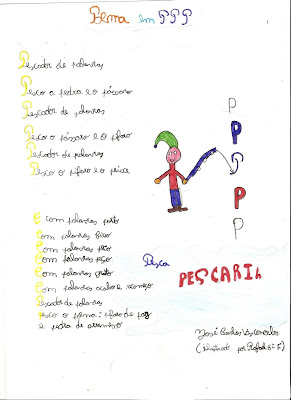 Poema em PPP
Pescador de palavras
Pesco a pedra e o pássaro
Pescador de palavras
Pesco o pássaro e o
Pescador de palavras
Pesco o e o peixe
E com palavras pinto
Com palavras
Com palavras
Com palavras peço
Com palavras grito
Com palavras acabo e começo
Pescador de palavras
Pesco o poema: flor de paz
e pedra de arremesso
P
P
P
P
P
Pesca
PESCARIA
José
(Ilustrado por Rafael 6º F)